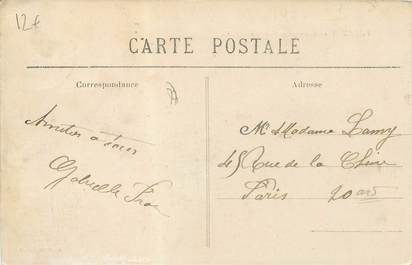 12€
CARTE POSTALE
Correspondance
Adresse
Amitiés à tous
Gabrielle
Mr Madame Lamy
45 Rue de la Chine
Paris 20